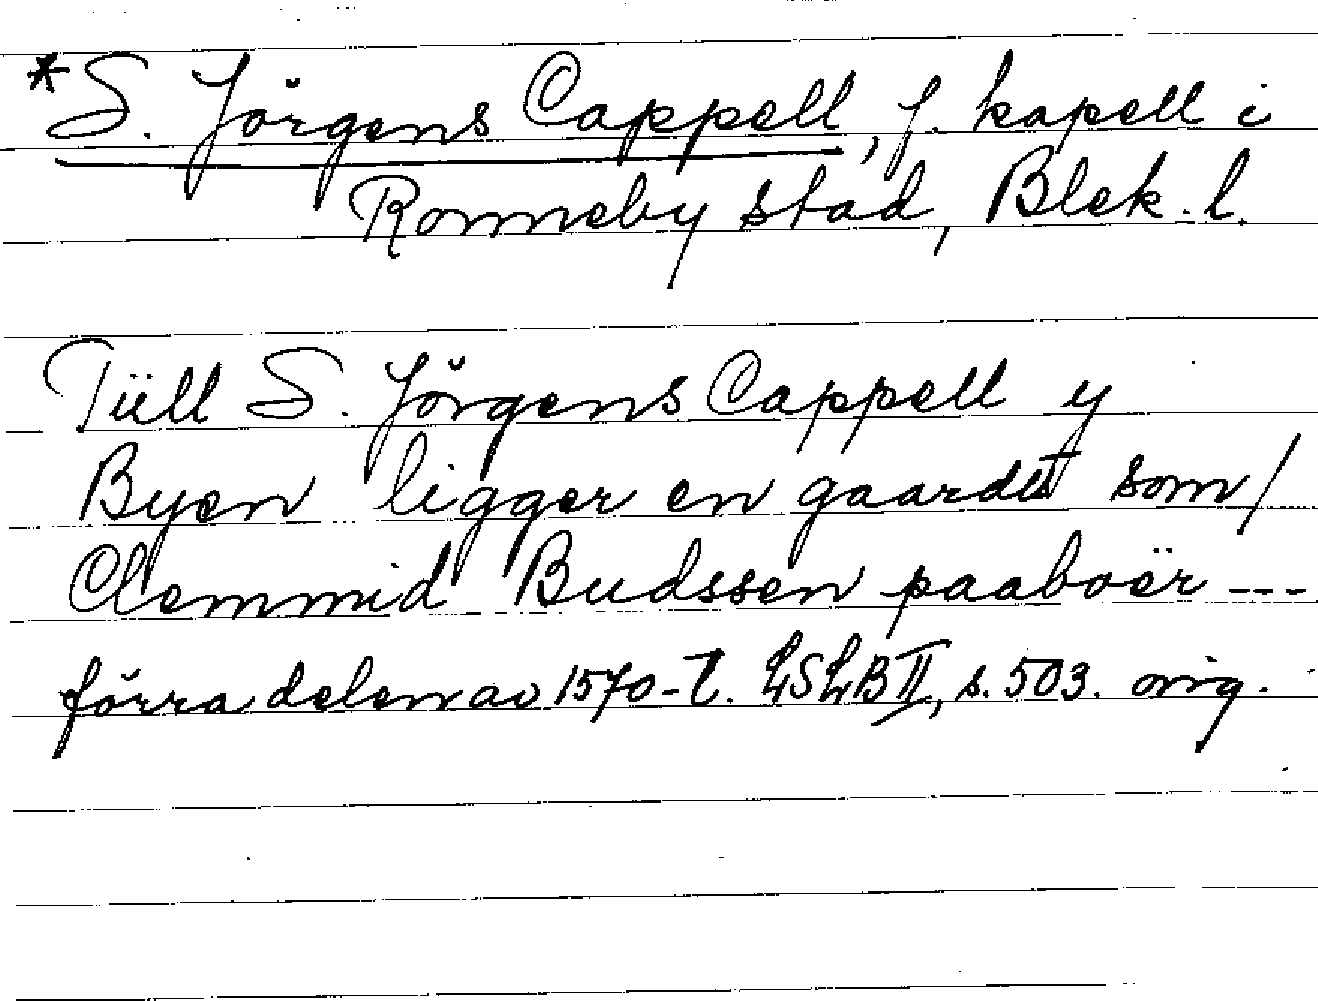 *S. Jörgens Cappell, f. kapell i
Ronneby stad, Blek. l.
Tüll S. Jörgens Cappell y
Byen ligger en gaardt som/
Clemmid Budssen paaboër ---
förra delen av 1570-t. LSLB II, s. 503. orig.